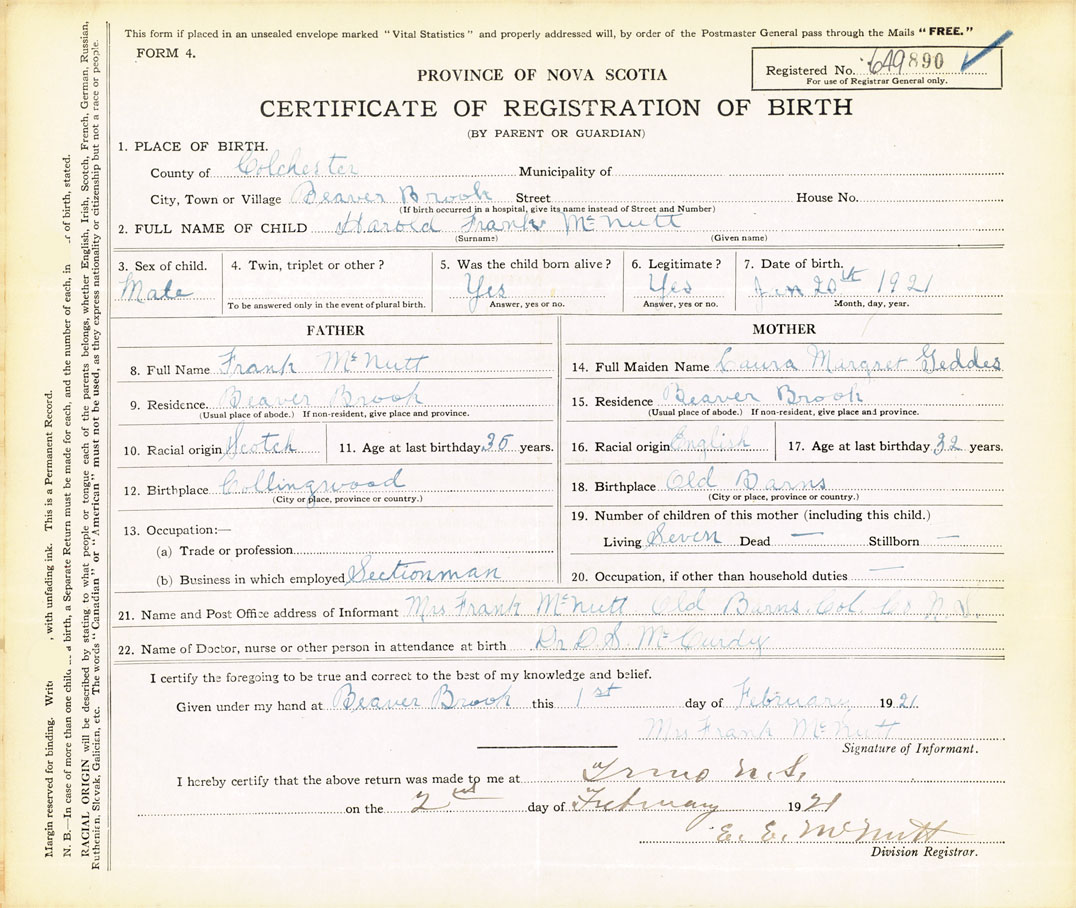 This form if placed in an unsealed envelope marked "Vital Statistics" and properly addressed will, by order of the Postmaster General pass through the Mails "FREE."
FORM 4.
Registered No. 649890
For use of Registrar General only.
PROVINCE OF NOVA SCOTIA
CERTIFICATE OF REGISTRATION OF BIRTH
(BY PARENT OR GUARDIAN)
1. PLACE OF BIRTH.
County of Colchester Municipality of
City, Town or Village Beaver Brook Street House No.
(If birth occurred in a hospital, give its name instead of Street and Number)
2. FULL NAME OF CHILD Harold Frank McNutt
(Surname) (Given name)
3. Sex of child. 4. Twin, triplet or other ? 5. Was the child born alive ? 6. Legitimate ? 7. Date of birth.
Male Yes Yes Jan 20th 1921
To be answered only in the event of plural birth. Answer, yes or no. Answer, yes or no. Month, day, year.
FATHER
8. Full Name Frank McNutt
9. Residence. Beaver Brook
(Usual place of abode.) If non-resident, give place and province.
10. Racial origin Scotch 11. Age at last birthday years.
12. Birthplace Collingwood
(City or place, province or country.)
13. Occupation:—
(a) Trade or profession
(b) Business in which employed Sectionman
MOTHER
14. Full Maiden Name Laura Margret Geddes
15. Residence Beaver Brook
(Usual place of abode.) If non-resident, give place and province.
16. Racial origin English 17. Age at last birthday 32 years.
18. Birthplace Old Barns
(City or place, province or country.)
19. Number of children of this mother (including this child.)
Living Seven Dead — Stillborn —
20. Occupation, if other than household duties —
21. Name and Post Office address of Informant Mrs Frank McNutt Old Barns. Col. Co. N.S.
22. Name of Doctor, nurse or other person in attendance at birth Dr D. S. McCurdy
I certify the foregoing to be true and correct to the best of my knowledge and belief.
Given under my hand at Beaver Brook this 1st day of February 1921.
Mrs Frank McNutt
Signature of Informant.
I hereby certify that the above return was made to me at Truro N.S.
on the 2nd day of February 1921
E. E. McNutt
Division Registrar.
Margin reserved for binding. Write , with unfading ink. This is a Permanent Record.
N. B.—In case of more than one child a birth, a Separate Return must be made for each, and the number of each, in of birth, stated.
RACIAL ORIGIN will be described by stating to what people or tongue each of the parents belongs, whether English, Irish, Scotch, French, German, Russian,
Ruthenian, Slovak, Galicien, etc. The words "Canadian" or "American" must not be used, as they express nationality or citizenship but not a race or people.